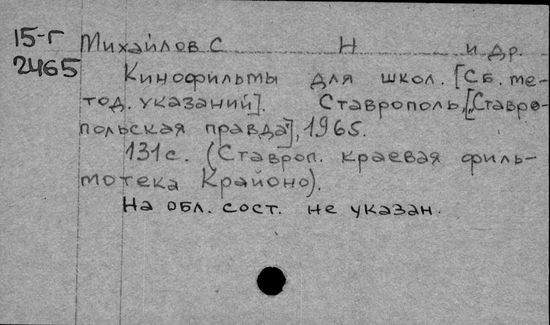 15-Г Михайлов С Н и др.
2465 Кинофильмы для школ. [Сб. ме-
тод. указаний]. Ставрополь, ["Ставро-
польская правда"], 1965.
131 с. (Ставроп. краевая филь-
мотека Крайоно).
На обл. сост. не указан.